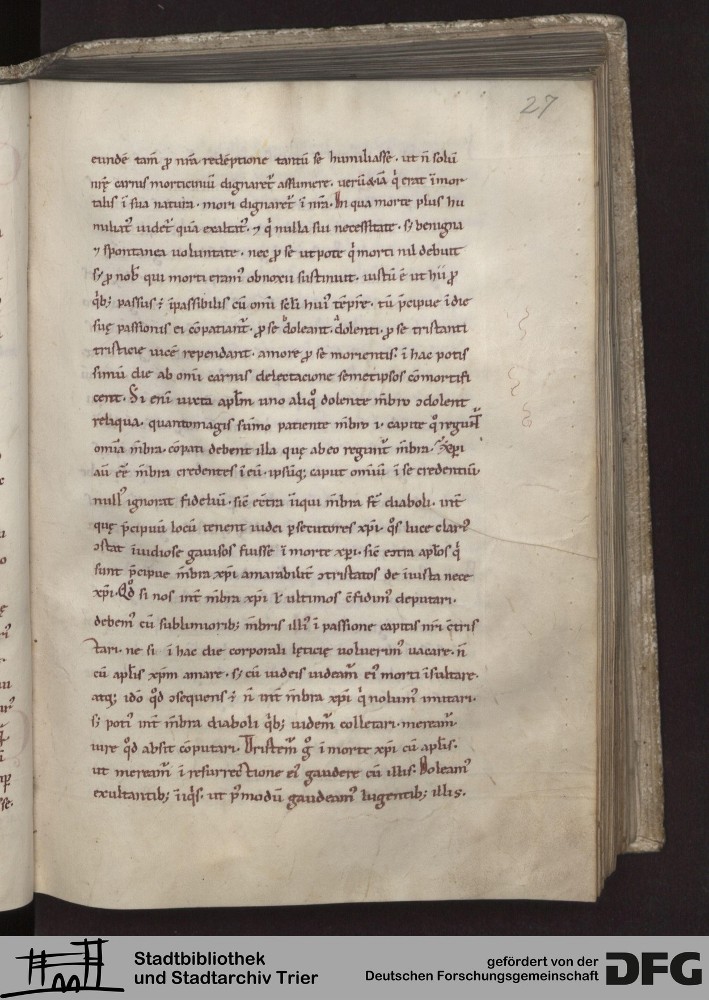 27
eundē tam̄ ꝓ nr̄a redēptione tantū se humiliasse · ut n̄ solū
nr̄ę carnis morticiniū dignaret᷑ assumere · verū & īmor
talis ī sua natura · mori dignaret᷑ ī nr̄a · In qua morte plus hu
miliat᷑ uidet᷑ quā exaltat᷑ · nulla sui necessitate · sꝫ benigna
⁊ spontanea uoluntate · nec ꝓ se utpote q̇ morti nil debuit
sꝫ ꝓ nob̄ qui morti eram᷒ obnoxii sustinuit · iustū ē ut hii ꝓ
q̇bꝫ passus ÷ īpassibilis cū om̄i
suę passionis ei cōpatiant᷑ · ꝓ se doleant · dolenti · ꝓ se tristanti
tristicię uicē rependant · amore ꝓ se morientis · ī hac potis
simū die ab om̄i carnis delectacione semetipsos cōmortifi
cent · Si eni iuxta apl̄m uno aliq̊ dolente mēbro ↄdolent
reliqua · quantomagis sūmo patiente mēbro · capite
om̄ia mēbra · cōpati debent illa quę ab eo regunt᷑ mēbra · xp̄i
aū ēē mēbra credentes ī eū · ipsūqꝫ caput om̄iū ī se credentiū
null᷒ ignorat fideliū · sic̄ ec̄tra īiqui mēbra st̄ diaboli · int̄
quę p̄cipuū locū tenent iudei ꝑsecutores xp̄i · q̊s luce clari᷒
ↄstat īuidiose gauisos fuisse ī morte xp̄i · sic̄ eↄtra apl̄os q̇
sunt p̄cipue mēbra xp̄i amarabilit᷑ ↄtristatos de īiusta nece
xp̄i · Qd̊ si nos int̄ mēbra xp̄i ł ultimos ↄfidim᷒ deputari ·
debem᷒ cū sublimioribꝫ mēbris illi᷒ ī passione capitis nr̄i ↄtris
tari · ne si ī hac die corporali lęticię uoluerim᷒ uacare · n̄
cū apl̄is xp̄m amare · sꝫ cū iudeis uideam᷑ ei᷒ morti īsultare ·
atqꝫ ido qd̊ ↄsequens ÷ n̄ int̄ mēbra xp̄i q̇ nolum᷒ imitari ·
sꝫ poti᷒ int̄ mēbra diaboli q̇bꝫ uidem᷑ colletari · meream᷑
iure qd̊ absit cōputari · Tristem᷑ g̊ ī morte xp̄i cū apl̄is ·
ut meream᷑ ī resurrectione ei᷒ gaudere cū illis · Doleam᷒
exultantibꝫ īiq̇s · ut p̄modū gaudeam᷒ lugentibꝫ illis ·
Stadtbibliothek
und Stadtarchiv Trier
gefördert von der
Deutschen Forschungsgemeinschaft
DFG